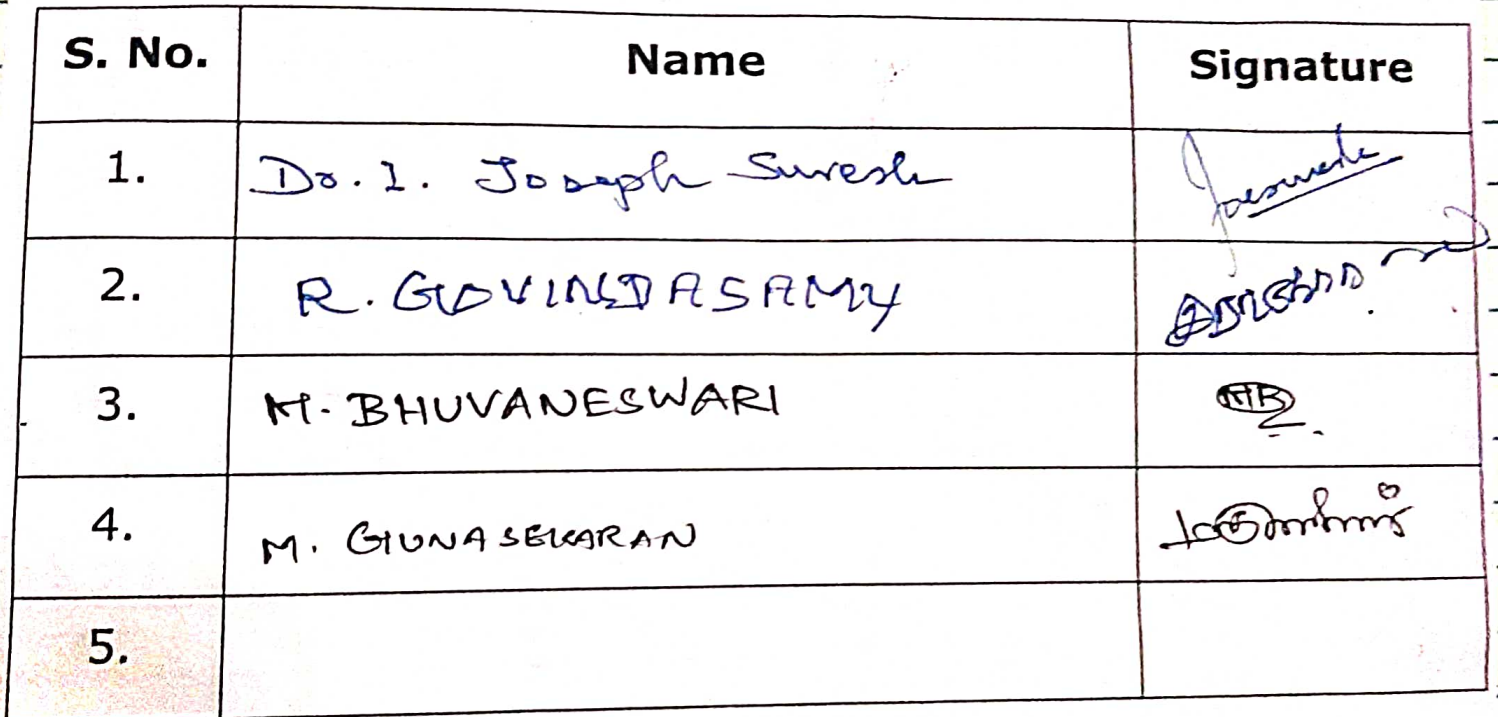 S. No. Name Signature
1. Dr. I. Joseph Suresh
2. R. GOVINDASAMY
3. M. BHUVANESWARI MB
4. M. GUNASEKARAN
5.